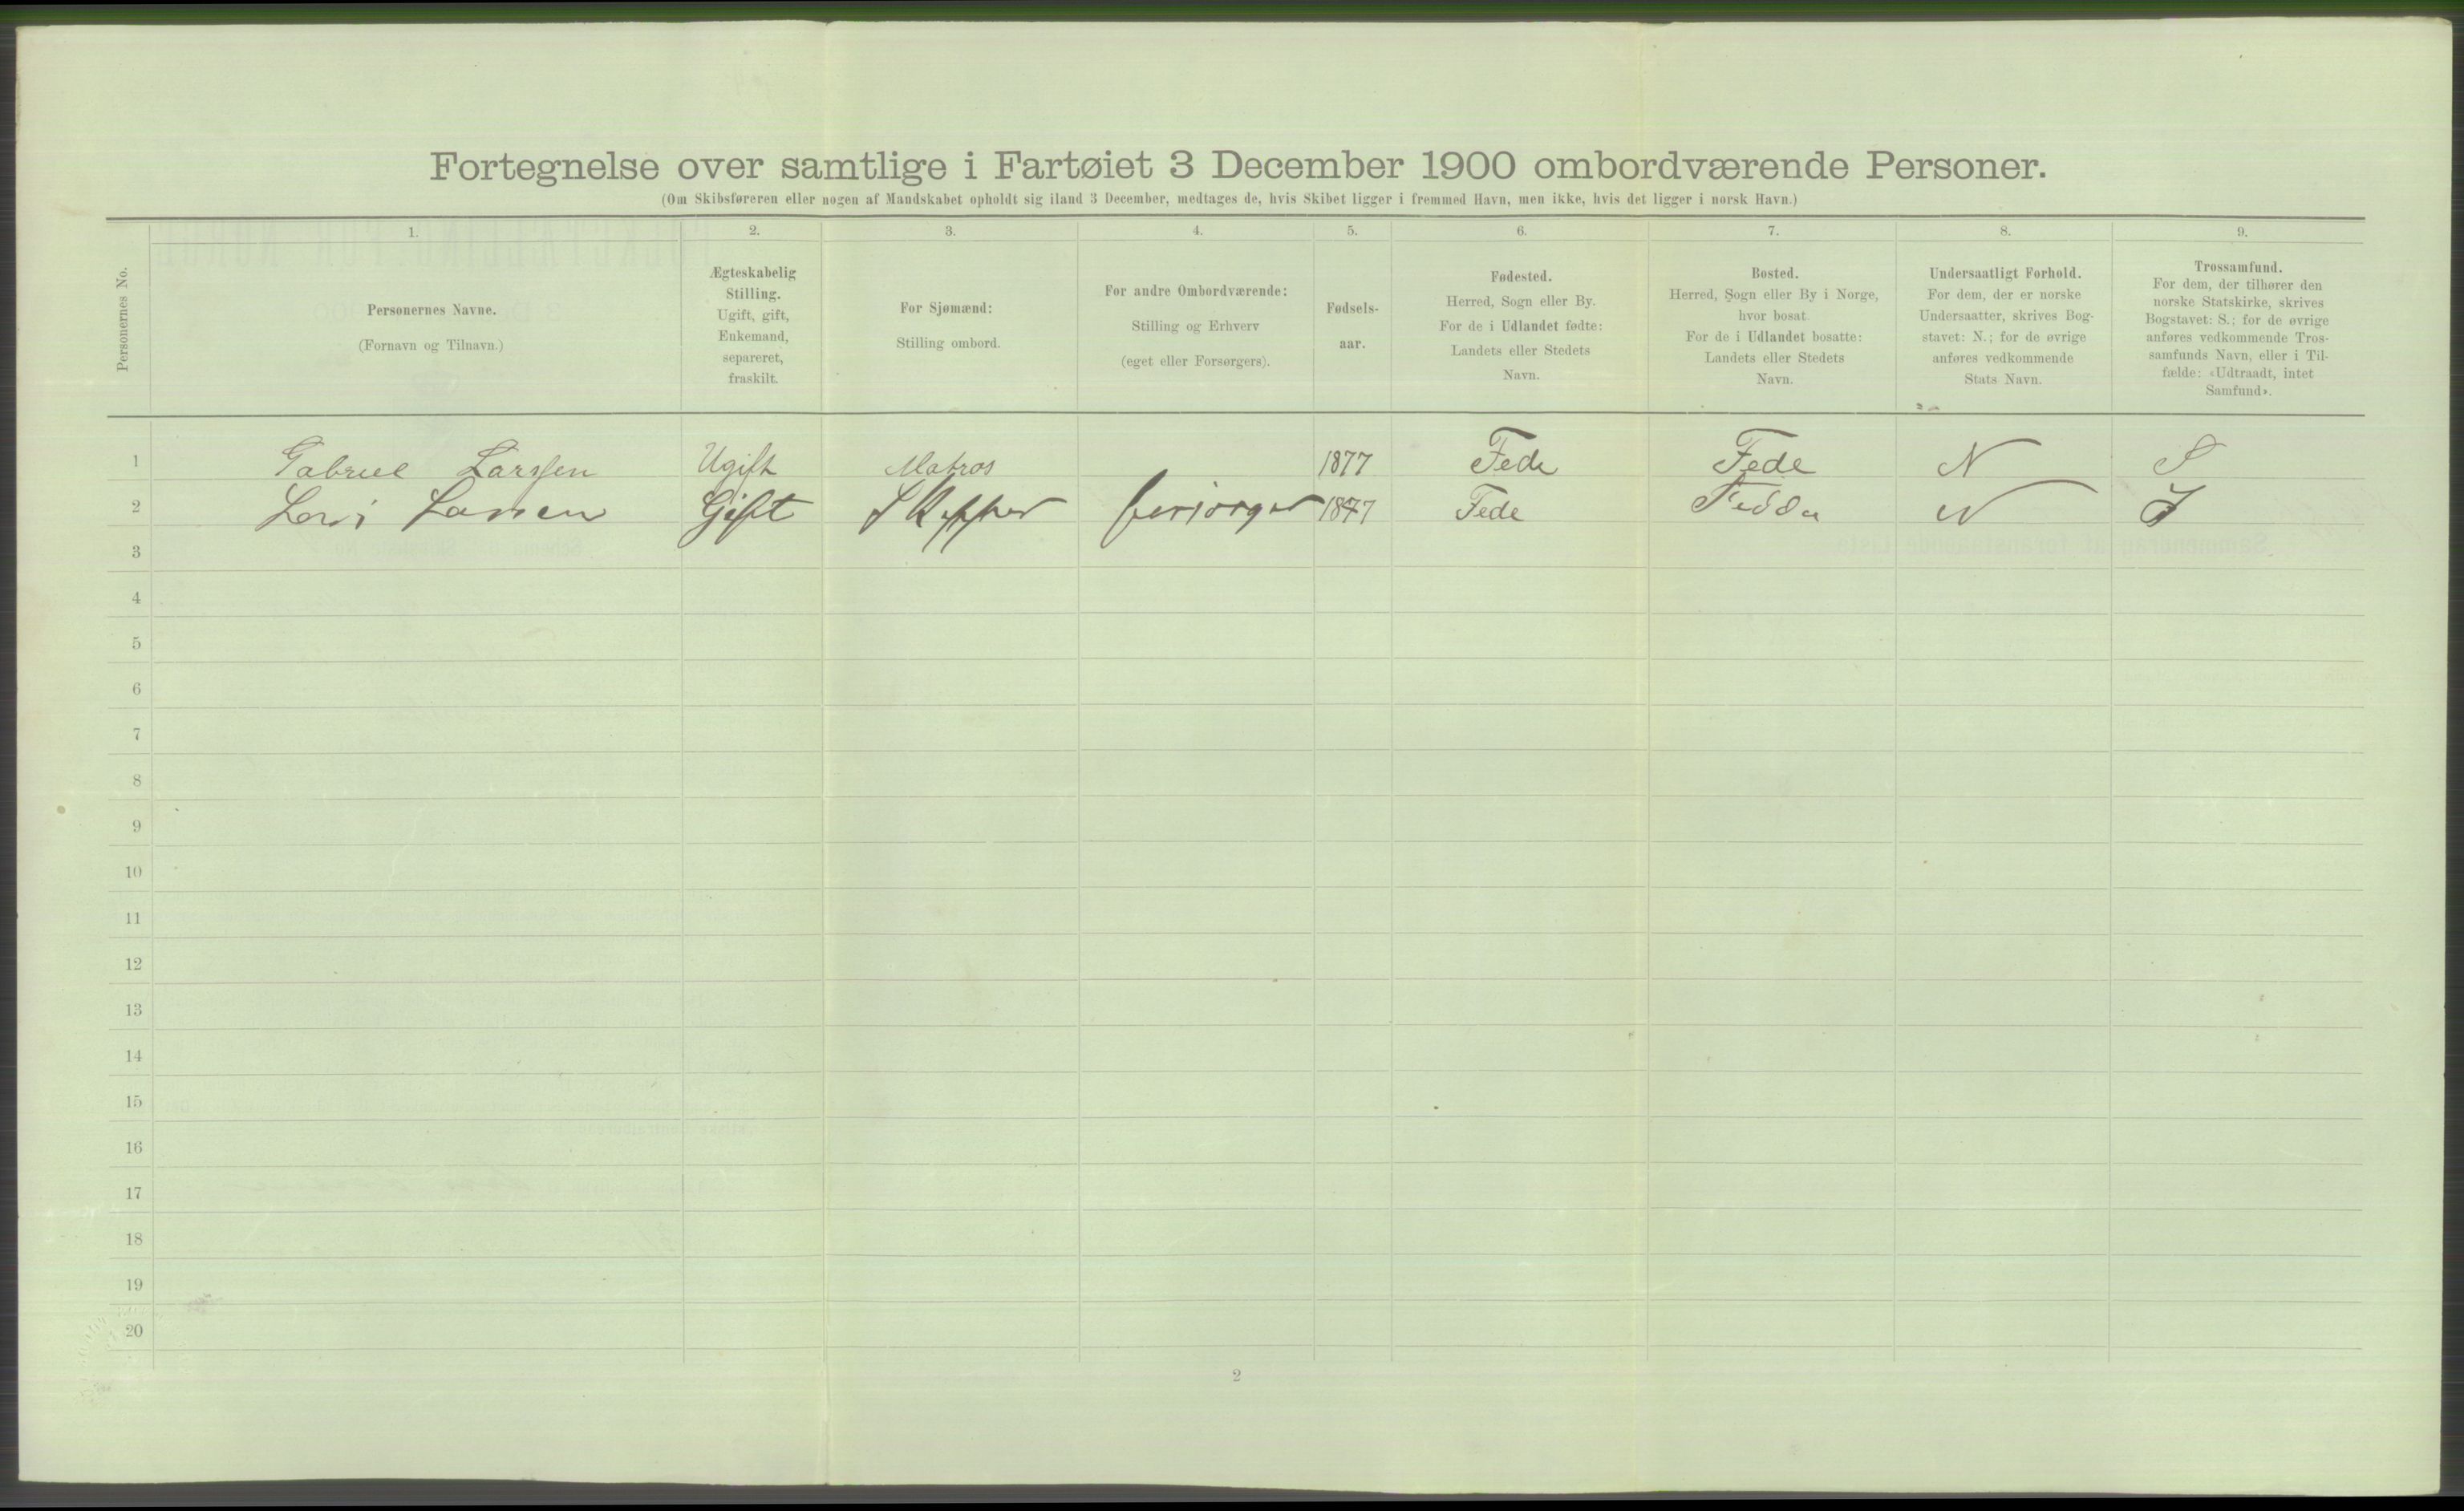 Fortegnelse over samtlige i Fartøiet 3 December 1900 ombordværende Personer.
(Om Skibsføreren eller nogen af Mandskabet opholdt sig iland 3 December, medtages de, hvis Skibet ligger i fremmed Havn, men ikke, hvis det ligger i norsk Havn.)
Personernes No.
1.
Personernes Navne.
(Fornavn og Tilnavn.)
2.
Ægteskabelig
Stilling.
Ugift, gift,
Enkemand,
separeret,
fraskilt.
3.
For Sjømænd:
Stilling ombord.
4.
For andre Ombordværende:
Stilling og Erhverv
(eget eller Forsørgers).
5.
Fødsels-
aar.
6.
Fødested.
Herred, Sogn eller By.
For de i Udlandet fødte:
Landets eller Stedets
Navn.
7.
Bosted.
Herred, Sogn eller By i Norge,
hvor bosat.
For de i Udlandet bosatte:
Landets eller Stedets
Navn.
8.
Undersaatligt Forhold.
For dem, der er norske
Undersaatter, skrives Bog-
stavet: N.; for de øvrige
anføres vedkommende
Stats Navn.
9.
Trossamfund.
For dem, der tilhører den
norske Statskirke, skrives
Bogstavet: S.; for de øvrige
anføres vedkommende Tros-
samfunds Navn, eller i Til-
fælde: «Udtraadt, intet
Samfund».
1 Gabriel Larssen Ugift Matros 1877 Fede Fede N S
2 Larsen Gift Skipper forsørger 1847 Fede Fedda N
3
4
5
6
7
8
9
10
11
12
13
14
15
16
17
18
19
20
2